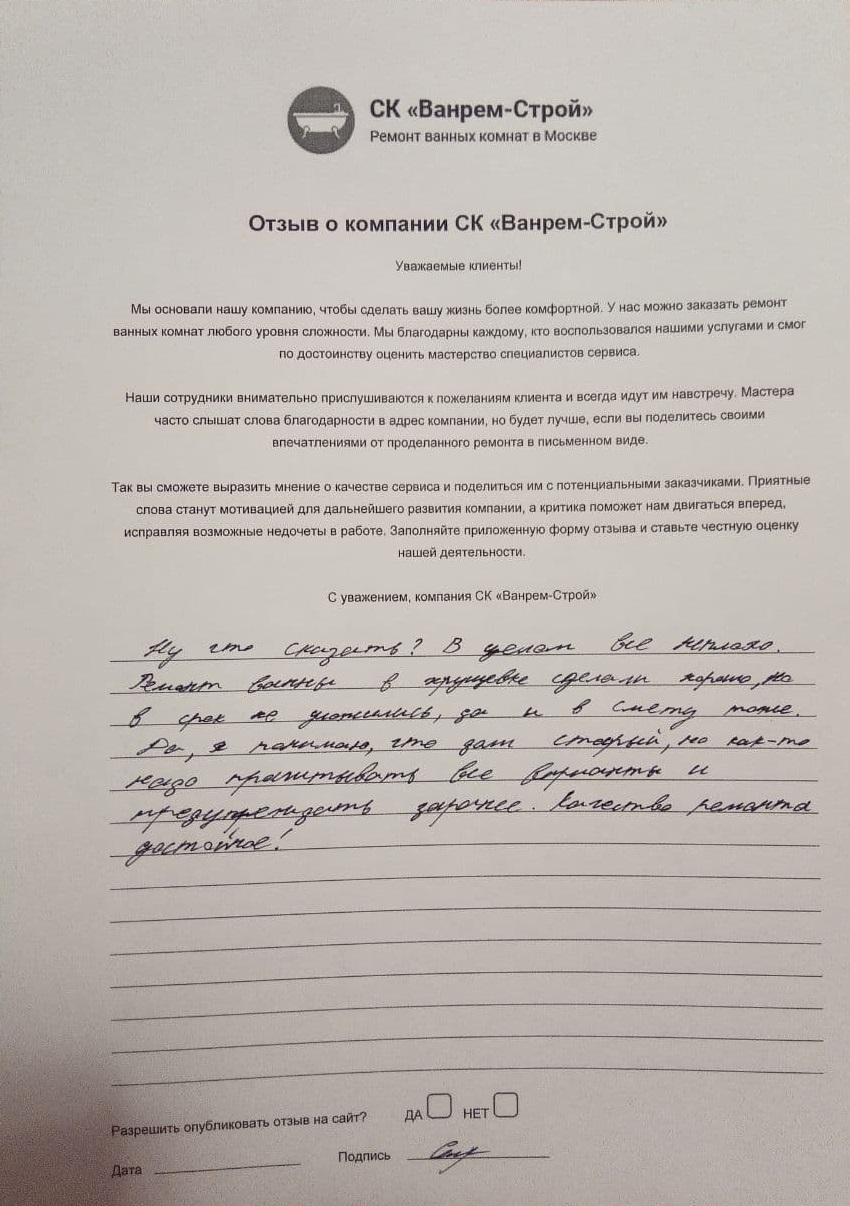 СК «Ванрем-Строй»
Ремонт ванных комнат в Москве
Отзыв о компании СК «Ванрем-Строй»
Уважаемые клиенты!
Мы основали нашу компанию, чтобы сделать вашу жизнь более комфортной. У нас можно заказать ремонт
ванных комнат любого уровня сложности. Мы благодарны каждому, кто воспользовался нашими услугами и смог
по достоинству оценить мастерство специалистов сервиса.
Наши сотрудники внимательно прислушиваются к пожеланиям клиента и всегда идут им навстречу. Мастера
часто слышат слова благодарности в адрес компании, но будет лучше, если вы поделитесь своими
впечатлениями от проделанного ремонта в письменном виде.
Так вы сможете выразить мнение о качестве сервиса и поделиться им с потенциальными заказчиками. Приятные
слова станут мотивацией для дальнейшего развития компании, а критика поможет нам двигаться вперед,
исправляя возможные недочеты в работе. Заполняйте приложенную форму отзыва и ставьте честную оценку
нашей деятельности.
С уважением, компания СК «Ванрем-Строй»
Ну что сказать? В целом все неплохо.
Ремонт ванны в хрущевке сделали хорошо, но
в срок не уложились, да и в смету тоже.
Да, я понимаю, что дом старый, но как-то
надо просчитывать все варианты и
предупреждать заранее. Качество ремонта
достойное!
Разрешить опубликовать отзыв на сайт? ДА НЕТ
Дата Подпись